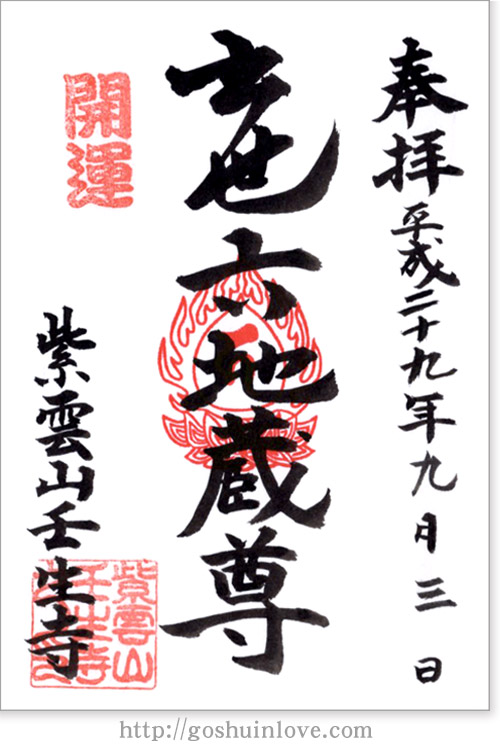 奉拝 平成二十九年九月三日
六地蔵尊
開運
紫雲山壬生寺
紫雲山
壬生寺
http://goshuinlove.com